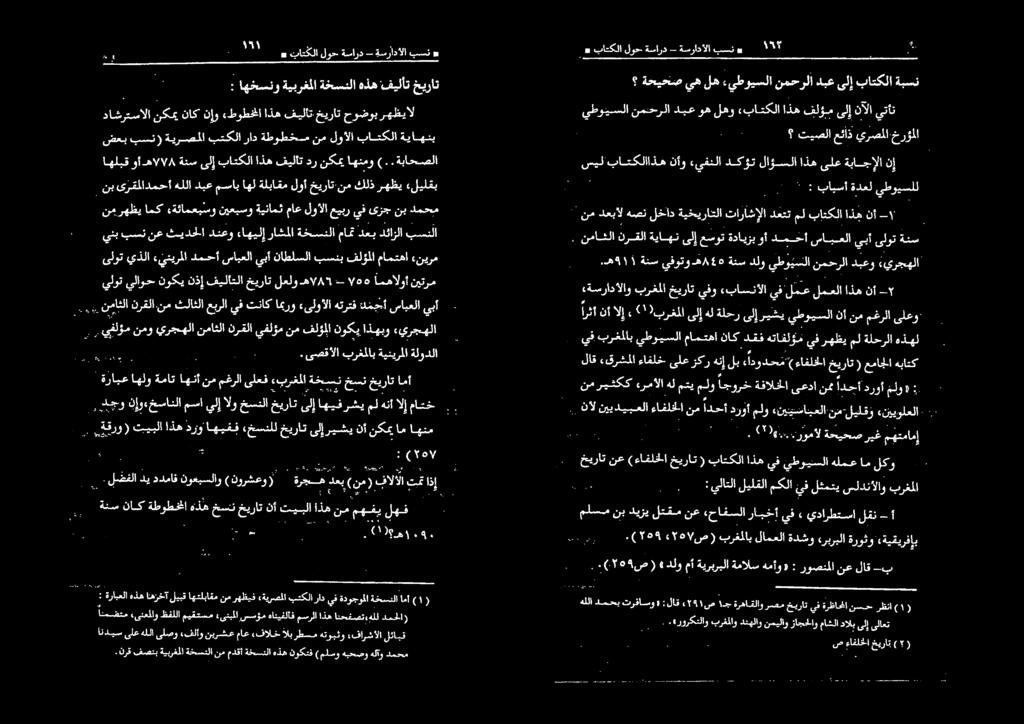 ١٦١ ■ نسب الأدارسة – دراسة حول الكتاب ■
تاريخ تأليف هذه النسخة المغربية ونسخها :
لا يظهر بوضوح تاريخ تأليف هذا المخطوط، وإن كان يمكن الاسترشاد
بنهاية الكتاب الأول من مخطوطة دار الكتب المصرية (نسب بعض
الصحابة..) ومنها يمكن رد تأليف هذا الكتاب إلى سنة ٧٧٨هـ أو قبلها
بقليل، يظهر ذلك من تاريخ أول مقابلة لها باسم عبد الله أحمد المقرى بن
محمد بن جزى في ربيع الأول عام ثمانية وسبعين وسبعمائة، كما يظهر من
النسب الزائد بعد تمام النسخة المشار إليها، وعند الحديث عن نسب بني
مرين، اهتمام المؤلف بنسب السلطان أبي العباس أحمد المريني، الذي تولى
مرتين أولاهما ٧٥٥ – ٧٨٦هـ ولعل تاريخ التأليف إذن يكون حوالي تولي
أبي العباس أحمد فترته الأولى، وربما كانت في الربع الثالث من القرن الثامن
الهجري، وبهذا يكون المؤلف من مؤلفي القرن الثامن الهجري ومن مؤلفي
الدولة المرينية بالمغرب الأقصى.
أما تاريخ نسخ نسخة المغرب، فعلى الرغم من أنها تامة ولها عبارة
ختام إلا أنه لم يشر فيها إلى تاريخ النسخ ولا إلي اسم الناسخ، وإن وجد
منها ما يمكن أن يشير إلى تاريخ للنسخ، ففيها ورد هذا البيت (ورقة
٢٥٧) :
إذا تمت الآلاف (من) بعد هـجرة (وعشرون) والسبعون فامدد يد الفضل
فهل يفهم من هذا البيت أن تاريخ نسخ هذه المخطوطة كان سنة
١٠٩٠هـ؟(١) .
(١) أما النسخة الموجودة في دار الكتب المصرية، فيظهر من مقابلتها قبيل آخرها هذه العبارة :
(الحمد لله، تصفحنا هذا الرسم فألفيناه مؤسس المبنى، مستقيم اللفظ والمعنى، متضمناً
قبائل الأشراف، وثبوته مسطر بلا خلاف، عام عشرين وألف، وصلى الله على سيدنا
محمد وآله وصحبه وسلم) فتكون هذه النسخة أقدم من النسخة المغربية بنصف قرن.
١٦٢ ■ نسب الأدارسة – دراسة حول الكتاب ■
نسبة الكتاب إلى عبد الرحمن السيوطي، هل هي صحيحة ؟
نأتي الآن إلى مؤلف هذا الكتاب، وهل هو عبد الرحمن السيوطي
المؤرخ المصري ذائع الصيت ؟
إن الإجابة على هذا السؤال تؤكد النفي، وأن هذا الكتاب ليس
للسيوطي لعدة أسباب :
١– أن هذا الكتاب لم تتعد الإشارات التاريخية داخل نصه لأبعد من
سنة تولى أبي العباس أحمد أو بزيادة توسع إلى نهاية القرن الثامن
الهجري، وعبد الرحمن السيوطي ولد سنة ٨٤٥هـ وتوفي سنة ٩١١هـ.
٢– أن هذا العمل عمل في الأنساب، وفي تاريخ المغرب والأدارسة،
وعلى الرغم من أن السيوطي يشير إلى رحلة له إلى المغرب(١)، إلا أن أثراً
لهذه الرحلة لم يظهر في مؤلفاته فقد كان اهتمام السيوطي بالمغرب في
كتابه الجامع (تاريخ الخلفاء) محدوداً، بل إنه ركز على خلفاء المشرق، قال
: «ولم أورد أحداً ممن ادعى الخلافة خروجاً ولم يتم له الأمر، ككثير من
العلويين، وقليل من العباسيين، ولم أورد أحداً من الخلفاء العبيديين لأن
إمامتهم غير صحيحة لأمور...»(٢) .
وكل ما عمله السيوطي في هذا الكتاب (تاريخ الخلفاء) عن تاريخ
المغرب والأندلس يتمثل في الكم القليل التالي:
أ – نقل استطرادي، في أخبار السفاح، عن مقتل يزيد بن مسلم
بإفريقية، وثورة البربر، وشدة العمال بالمغرب (ص٢٥٧، ٢٥٩).
ب– قال عن المنصور : «وأمه سلامة البربرية أم ولد» (ص٢٥٩).
(١) انظر حسن المحاظرة في تاريخ مصر والقاهرة جـ١ ص٢٩١، قال: «وسافرت بحمد الله
تعالى إلى بلاد الشام والحجاز واليمن والهند والمغرب والتكرور».
(٢) تاريخ الخلفاء ص